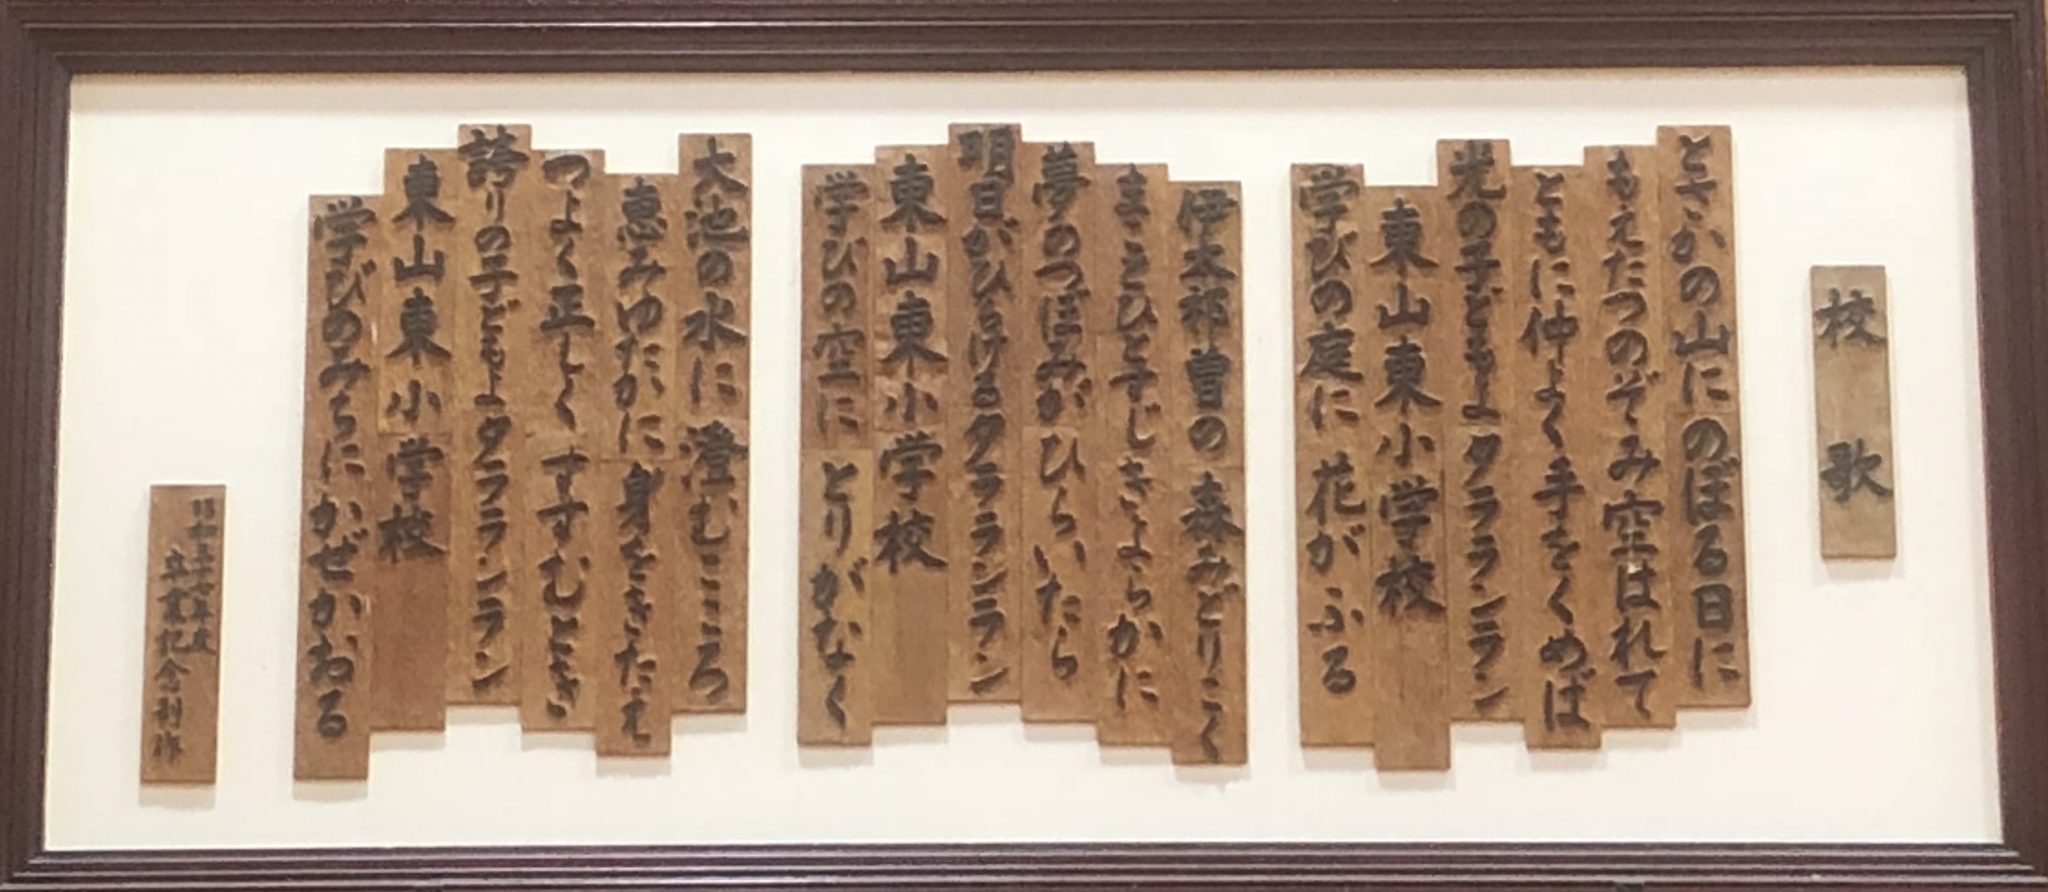 校歌
とさかの山にのぼる日に
もえたつのぞみ空はれて
ともに仲よく手をくめば
光の子どもよタラランラン
東山東小学校
学びの庭に花がふる
伊太祁曽の森みどりこく
まことひとすじきよらかに
夢のつぼみがひらいたら
明日がひらけるタラランラン
東山東小学校
学びの空にとりがなく
大池の水に澄むこころ
恵みゆたかに身をきたえ
つよく正しくすすむとき
誇りの子どもよタラランラン
東山東小学校
学びのみちにかぜかおる
昭和五十七年度
卒業記念制作